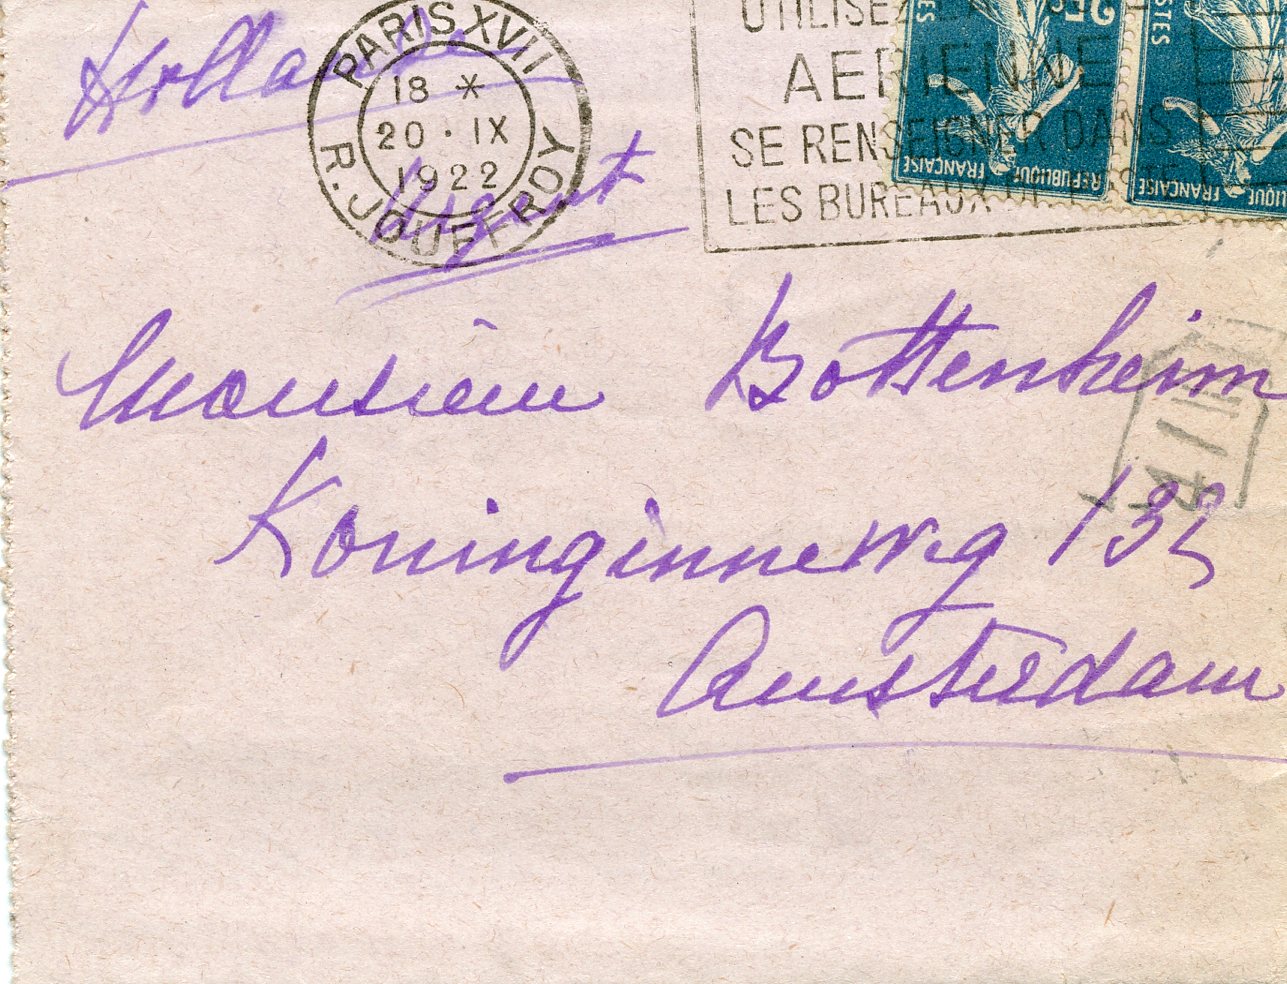 Hollande
PARIS XVII
18 *
20 · IX
1922
R. JOUFFROY
Urgent
UTILISEZ
AERIENNE
SE RENSEIGNER DANS
LES BUREAUX
25c
POSTES
REPUBLIQUE FRANÇAISE
POSTES
FRANÇAISE
Monsieur Bottenheim
Koninginneweg 132
Amsterdam